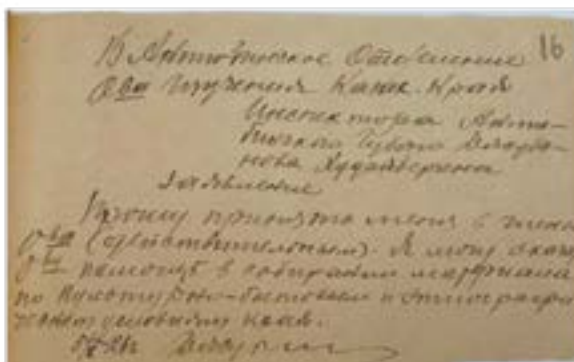 В Актюбинское Отделение 16
О ва Изучения Казак. Края
Инспектора Актю-
бинского Губоно
Худайбергена
Заявление
Прошу принять меня в члены
О-ва (действительным). Я могу оказа
О ву помощь в собирании материала
по культурно-бытовым и этнографи
ческим условиям края.